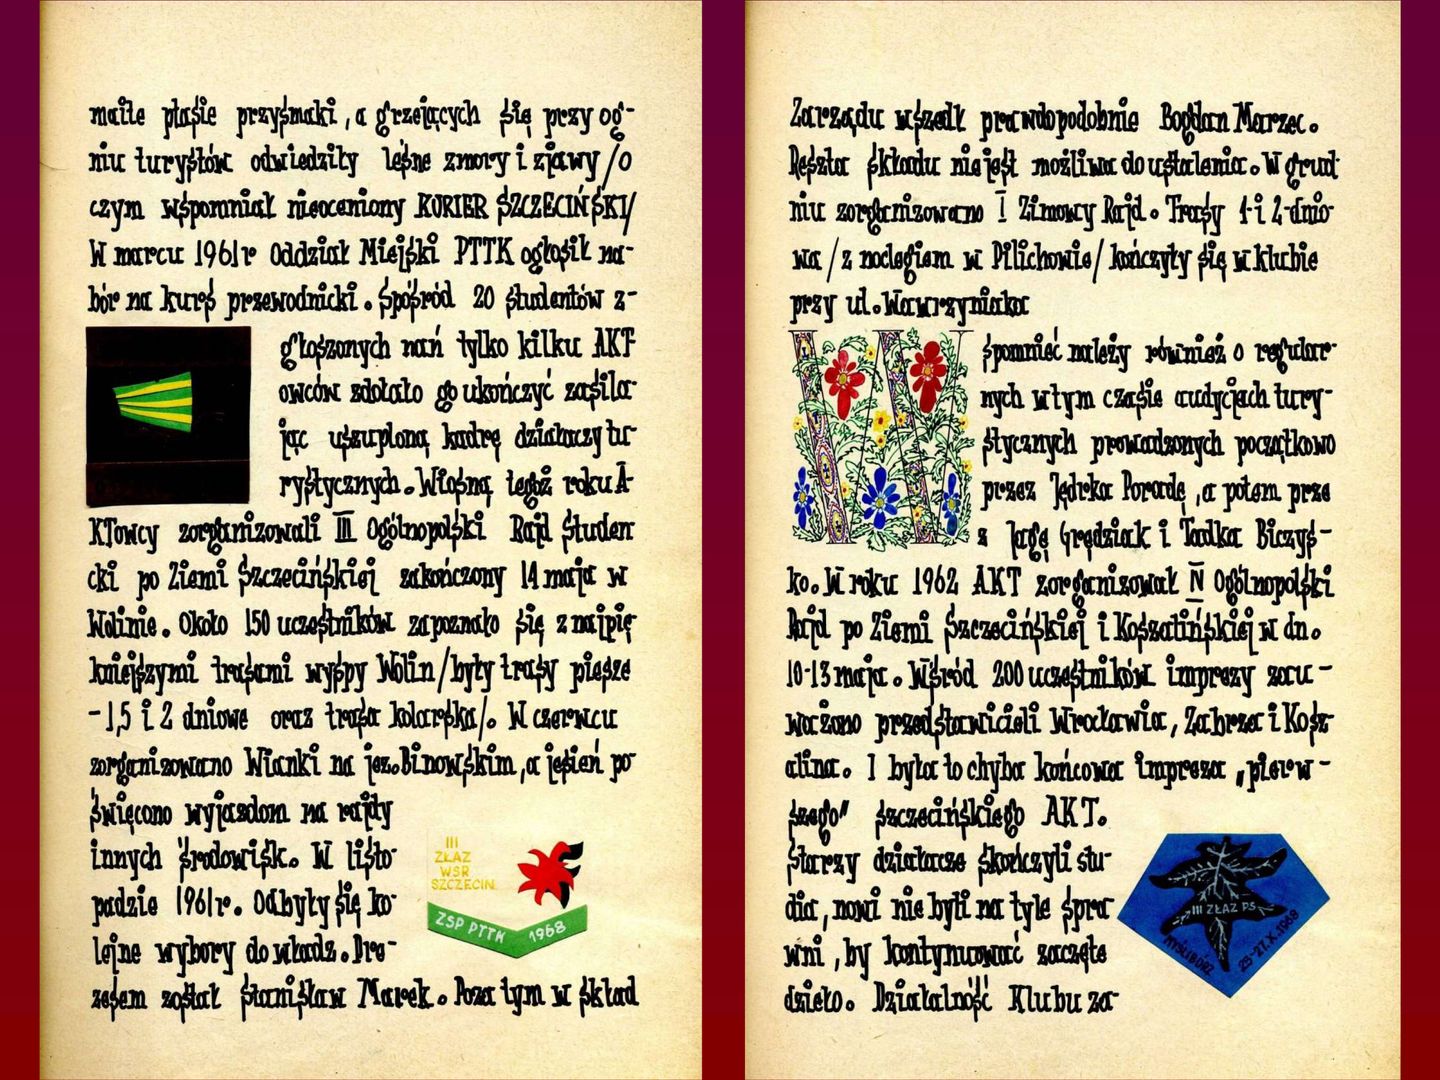 maite ptasie przysmaki, a grzejących się przy og-
niu turystów odwiedziły leśne zmory i zjawy /o
czym wspomniał nieoceniony KURIER SZCZECIŃSKI/
W marcu 1961r Oddział Miejski PTTK ogłosił na-
bór na kurs przewodnicki. Spośród 20 studentów z-
głoszonych nań tylko kilku AKT
owców zdołało go ukończyć zasila-
jąc uszuploną kadrę działaczy tu-
rystycznych. Wiosną tegoż roku A-
KTowcy zorganizowali III Ogólnopolski Rajd Studen
cki po Ziemi Szczecińskiej zakończony 14 maja w
Wolinie. Około 150 uczestników zapoznało się z najpię-
kniejszymi trasami wyspy Wolin /były trasy piesze
- 1,5 i 2 dniowe oraz trasa kolarska/. W czerwcu
zorganizowano Wianki na jez. Binowskim, a jesień po-
święcono wyjazdom na rajdy
innych środowisk. W listo-
padzie 1961r. Odbyły się ko-
lejne wybory do władz. Pre-
zesem został Stanisław Marek. Poza tym w skład
III
ZŁAZ
WSR
SZCZECIN
ZSP PTTK 1968
Zarządu wszedł prawdopodobnie Bogdan Marzec.
Reszta składu nie jest możliwa do ustalenia. W grud
niu zorganizowano I Zimowy Rajd. Trasy 1-i 2-dnio-
wa /z noclegiem w Pilichowie/ kończyły się w klubie
przy ul. Wawrzyniaka
W
spomnieć należy również o regular-
nych w tym czasie audycjach tury-
stycznych prowadzonych początkowo
przez Jędrka Poradę, a potem prze
z Jagę Grędziak i Tadka Biczys-
ko. W roku 1962 AKT zorganizował IV Ogólnopolski
Rajd po Ziemi Szczecińskiej i Koszalińskiej w dn.
10-13 maja. Wśród 200 uczestników imprezy zau-
ważono przedstawicieli Wrocławia, Zabrza i Kosz
alina. I była to chyba końcowa impreza „pierw-
szego" szczecińskiego AKT.
Starzy działacze skończyli stu-
dia, nowi nie byli na tyle spra
wni, by kontynuować zaczęte
dzieło. Działalność Klubu za-
III ZŁAZ PS
MYŚLIBÓRZ 25-27.X.1968